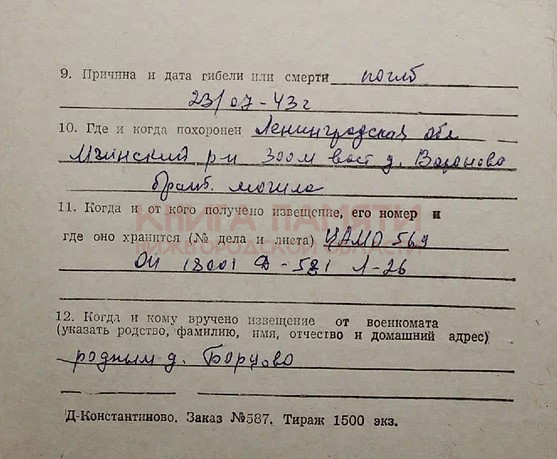 9. Причина и дата гибели или смерти погиб
23/07-43г
10. Где и когда похоронен Ленинградская обл
Мгинский р-н 300м вост д. Вороново
братс. могила
11. Когда и от кого получено извещение, его номер и
КНИГА ПАМЯТИ
где оно хранится (№ дела и листа) ЦАМО 569
НИЖЕГОРОДСКОЙ ОБЛАСТИ
ОП 18001 Д-521 Л-26
12. Когда и кому вручено извещение от военкомата
(указать родство, фамилию, имя, отчество и домашний адрес)
родным д. Борцово
Д-Константиново. Заказ №587. Тираж 1500 экз.